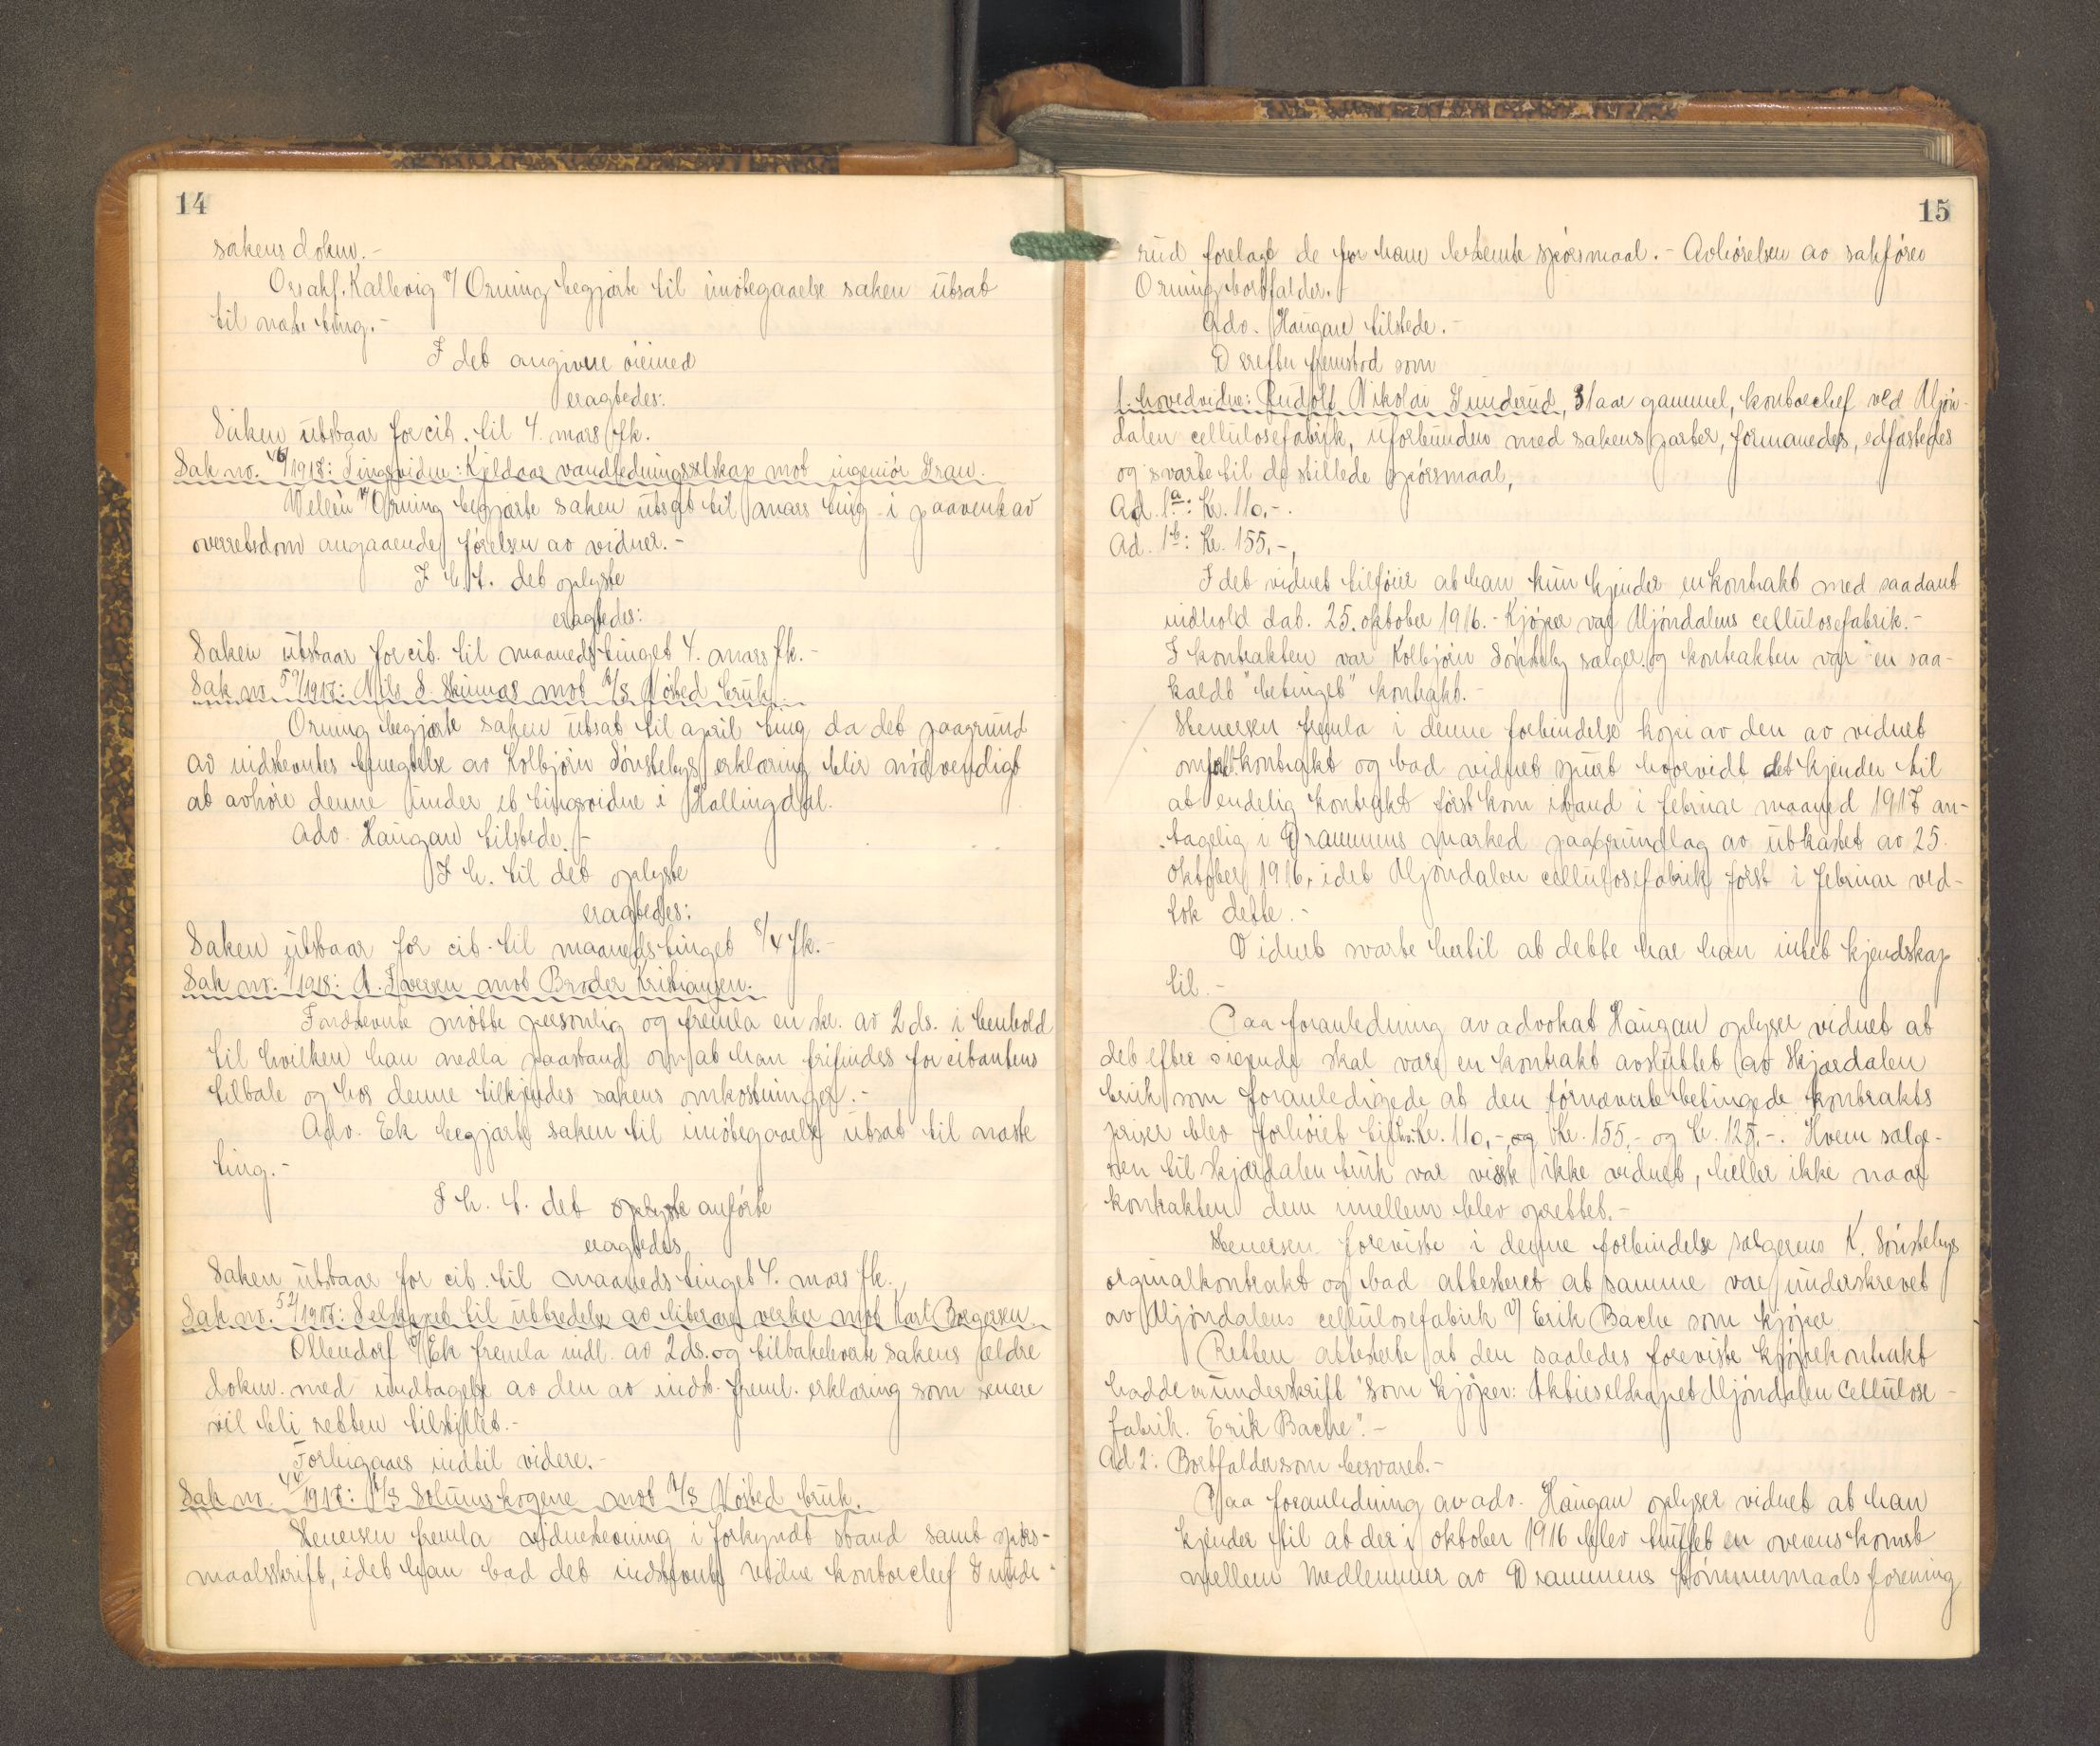 14
sakens dokm.-
Orsakf. Kallevig v/ Orning begjærte til imøtegaaelse saken utsat
til næste ting.-
I det angivne øiemed
eragtedes:
Saken utstaar for cit. til 4. mars fk.
Sak no. 46/1918: Tingsvidne: Kjeldaas vandledningsselskap mot ingeniør Gran.
Wellén v/ Orning begjærte saken utsat til mars ting i paavente av
overretsdom angaaende førelsen av vidner.-
I h. t. det oplyste
eragtedes:
Saken utstaar for cit. til maanedstinget 4. mars fk.-
Sak nr. 59/1917: Nils S. Skinnes mot A/S Nøsted bruk.
Orning begjærte saken utsat til april ting da det paa grund
av indstevntes benegtelse av Kolbjørn Sønstebys erklæring blir nødvendigt
at avhøre denne under et tingsvidne i Hallingdal.
Adv. Haugan tilstede.-
I h. til det oplyste
eragtedes:
Saken utstaar for cit. til maanedstinget 8/4 fk.-
Sak nr. 1/1918: A. Iversen mot Brødr. Kristiansen.
Indstevnte møtte personlig og fremla en skr. av 2 ds. i henhold
til hvilken han nedla paastand om at han frifindes for citantens
tiltale og hos denne tilkjendes sakens omkostninger.-
Adv. Ek begjærte saken til imøtegaaelse utsat til næste
ting.-
I h. t. det oplyste anførte
eragtedes
Saken utstaar for cit. til maanedstinget 4. mars fk.
Sak nr. 52/1917: Selskapet til utbredelse av literære verker mot Karl Borgersen.
Ollendorf v/ Ek fremla indl. av 2 ds. og tilbakeleverte sakens ældre
dokm. med undtagelse av den av indst. freml. erklæring som senere
vil bli retten tilstillet.-
Forbigaaes indtil videre.-
Sak nr. 44/1917: A/S Solumskogene mot A/S Nøsted bruk.
Stenersen fremla vidnestevning i forkyndt stand samt spørs-
maalsskrift, idet han bad det indstevnte vidne kontorchef Gunde-
15
rud forelagt de for ham bestemte spørsmaal.- Avhørelsen av sakfører
Orning bortfalder.
Adv. Haugan tilstede.-
Derefter fremstod som
1. hovedvidne: Rudolf Nikolai Gunderud, 31 aar gammel, kontorchef ved Mjøn-
dalen cellulosefabrik, uforbunden med sakens parter, formanedes, edfæstedes
og svarte til de stillede spørsmaal,
Ad. 1a: Kr. 110,-.
Ad. 1b: Kr. 155,-,
Idet vidnet tilføier at han kun kjender en kontrakt med saadant
indhold dat. 25. oktober 1916.- Kjøper var Mjøndalens cellulosefabrik.-
I kontrakten var Kolbjørn Sønsteby sælger og kontrakten var en saa-
kaldt "betinget" kontrakt.-
Stenersen fremla i denne forbindelse kopi av den av vidnet
omtalte kontrakt og bad vidnet spurt hvorvidt det kjender til
at endelig kontrakt først kom istand i februar maaned 1917 an-
tagelig i Drammens marked paa grundlag av utkastet av 25.
oktober 1916, idet Mjøndalen cellulosefabrik først i februar ved-
tok dette.-
Vidnet svarte hertil at dette har han intet kjendskap
til.-
Paa foranledning av advokat Haugan oplyser vidnet at
det efter sigende skal være en kontrakt avsluttet av Skjærdalen
bruk som foranledigede at den førnævnte betingede kontrakts
priser blev forhøiet til kr. 110,- og kr. 155,- og kr. 125,-. Hvem sælge-
ren til Skjærdalen bruk var visste ikke vidnet, heller ikke naar
kontrakten dem imellem blev oprettet.-
Stenersen foreviste i denne forbindelse sælgerens K. Sønstebys
orginalkontrakt og bad attesteret at samme var underskrevet
av Mjøndalens cellulosefabrik v/ Erik Bache som kjøper.
Retten attesterte at den saaledes foreviste kjøpekontrakt
hadde en underskrift "Som kjøper: Aktieselskapet Mjøndalen Cellulose-
fabrik. Erik Bache".-
Ad 2: Bortfalder som besvaret.-
Paa foranledning av adv. Haugan oplyser vidnet at han
kjender til at der i oktober 1916 blev truffet en overenskomst
mellem medlemmer av Drammens tømmermaalsforening